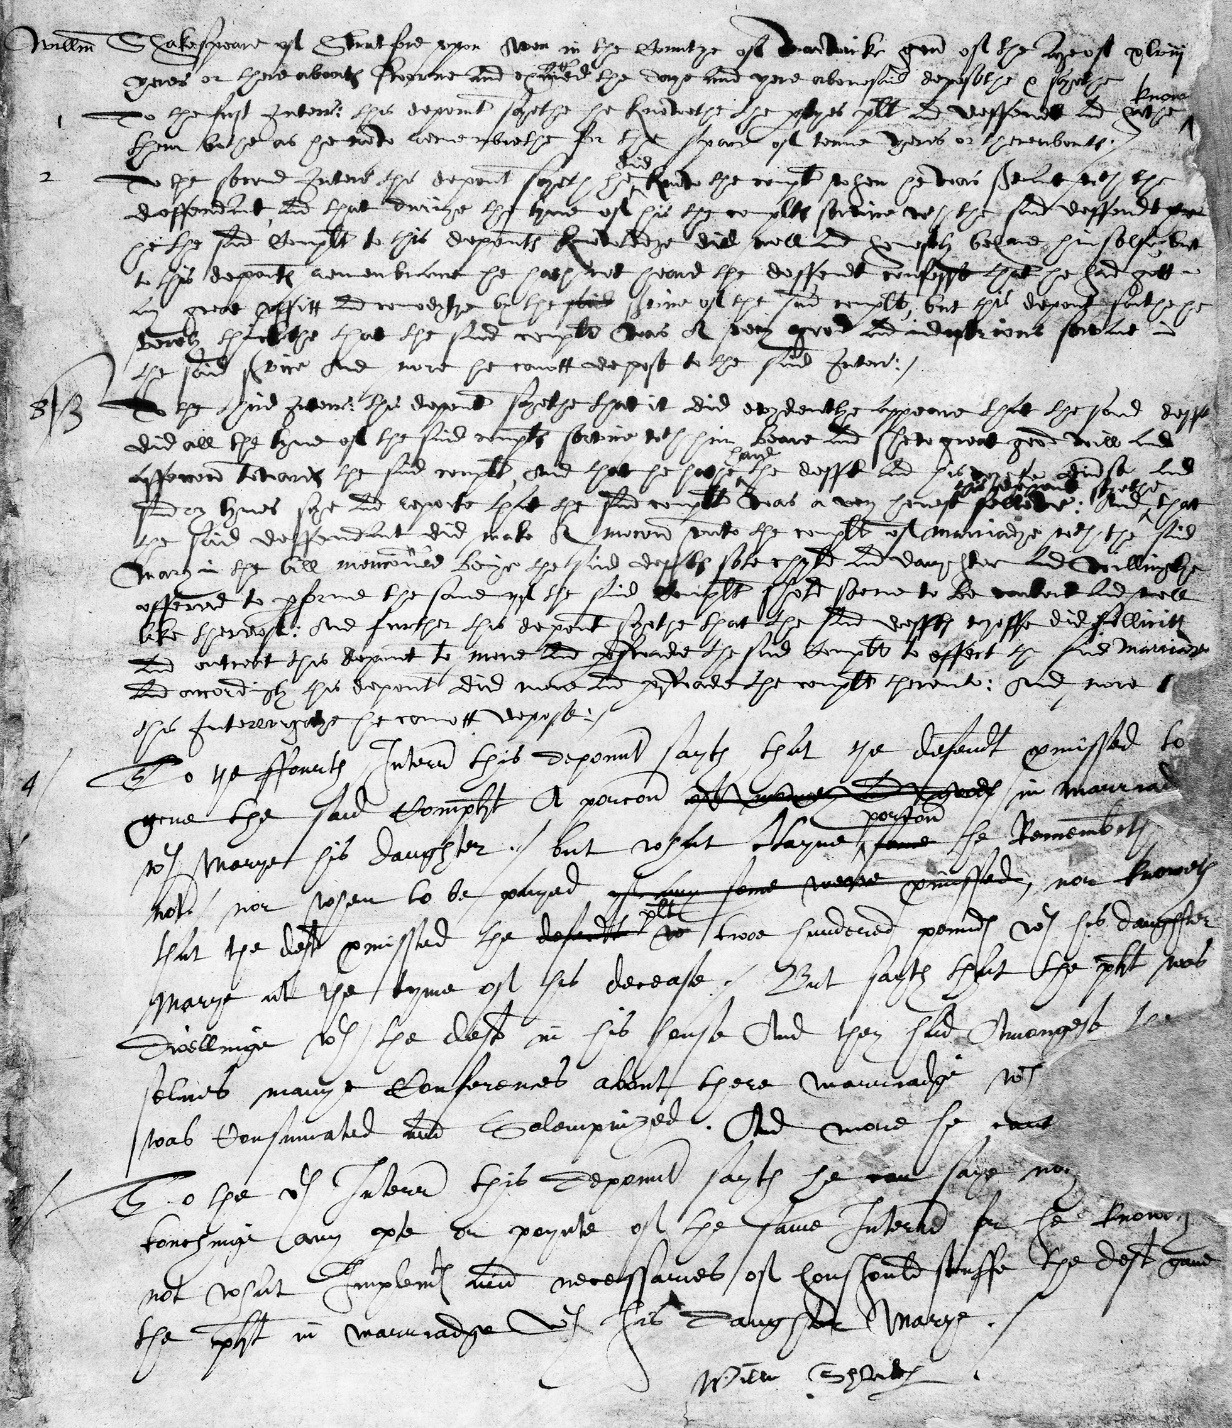 Willm Shakespeare of Stratford vpon Aven in the Countye of Warwicke gent of the Age of xlviij
yeres or thereaboutes sworne and examined the daye and yere abouesaid deposethe & sayethe
1 To the first Interr this deponent sayethe he knowethe the partyes plt and deffendt and hathe know
them bothe as he now remembrethe for the space of tenne yeres or thereaboutes /
2 To the second Interr this deponent sayeth he did know the complt when he was servant with the
deffendant, and that duringe the tyme of his the complts service with the said deffendt
he the said Complt to this deponentes knowledge did well and honestly behaue himselfe, but
to this deponentes remembrance he hath not heard the deffendt confesse that he had gott
any great proffitt and comodytye by the said service of the said complt, but this deponent saithe he
verely thinckethe that the said complt was A very good and industrious servant in
the said service And more he canott depose to the said Interr: /
3 To the third Interr this deponent sayethe that it did evydentlye appeare that the said deft
did all the tyme of the said complts service with him beare and shew great good will and
affeccion towardes the said complt, And that he hathe hard the defft and his wyeffe diuerse and
sundry tymes saye and reporte that the said complt was a very honest fellowe: And this deponent sayethe that
the said deffendant did make A mocion vnto the complt of marriadge with the said
Mary in the bill mencioned beinge the said defftes sole chyld and daughter and willinglye
offered to performe the same yf the said Complt shold seeme to be content and well
like thereof: And further this deponent sayethe that the said deffts wyeffe did sollicitt
and entreat this deponent to move and perswade the said Complt to effect the said Marriadge
and accordingly this deponent did move and perswade the complt therevnto: And more
this Interrigatye he canott depose: /
4 / To the ffourth Interr this deponent sayth that the defendt promissed to
geue the said Complt A porcion in Marriad
with Marye his daughter. / but what certayne porcion he Rememberithe
not. / nor when to be payed nor knoweth
that the deft promissed the plt twoe hundered poundes with his daughter
Marye at the tyme of his decease. / But sayth that the plt was
dwellinge with the deft in his house And they had Amongeste the
selues manye Conferences about there marriadge which
was Consumated and Solempnized. And more he cann
/ To the vth Interr this deponent sayth he can saye noth
touchinge any parte or poynte of the same Interr for he knoweth
not what Implementes and necessaries of houshould stuffe the deft gaue
the plt in marriadge with his daughter Marye. /
Willm Shaks